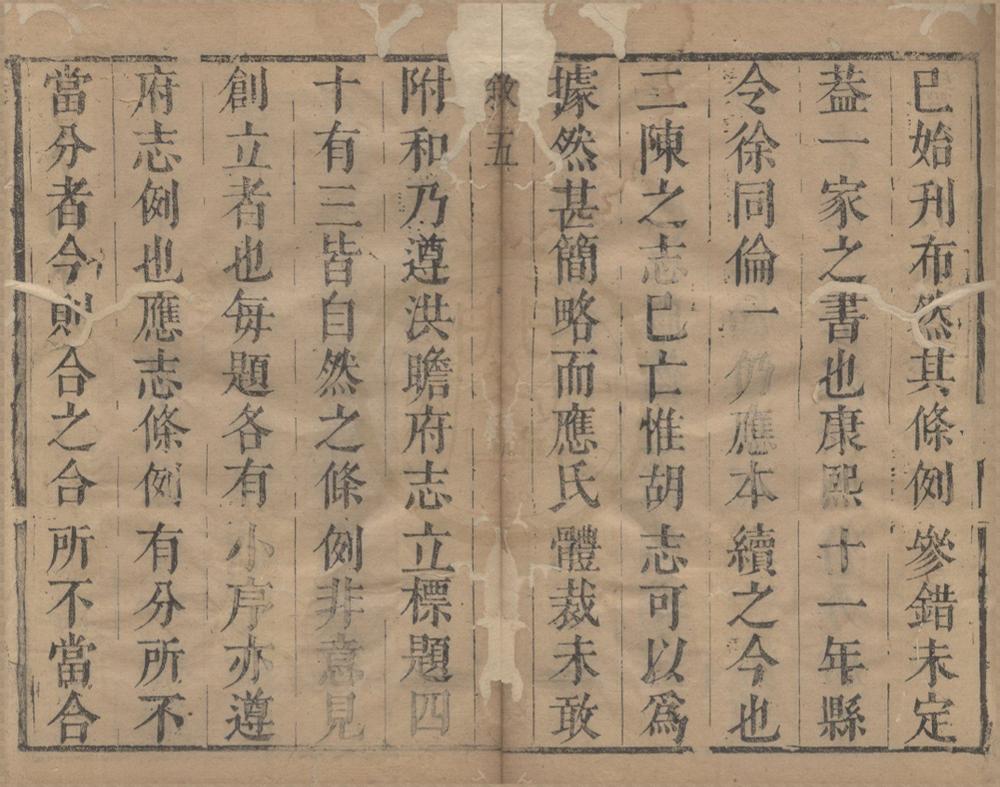 已始刋布然其條例參錯未定
葢一家之書也康熙十一年縣
令徐同倫一仍應本續之今也
二陳之志已亡惟胡志可以爲
據然甚簡略而應氏體裁未敢
敘五
附和乃遵洪瞻府志立標題四
十有三皆自然之條例非意見
創立者也每題各有小序亦遵
府志例也應志條例有分所不
當分者今則合之合所不當合